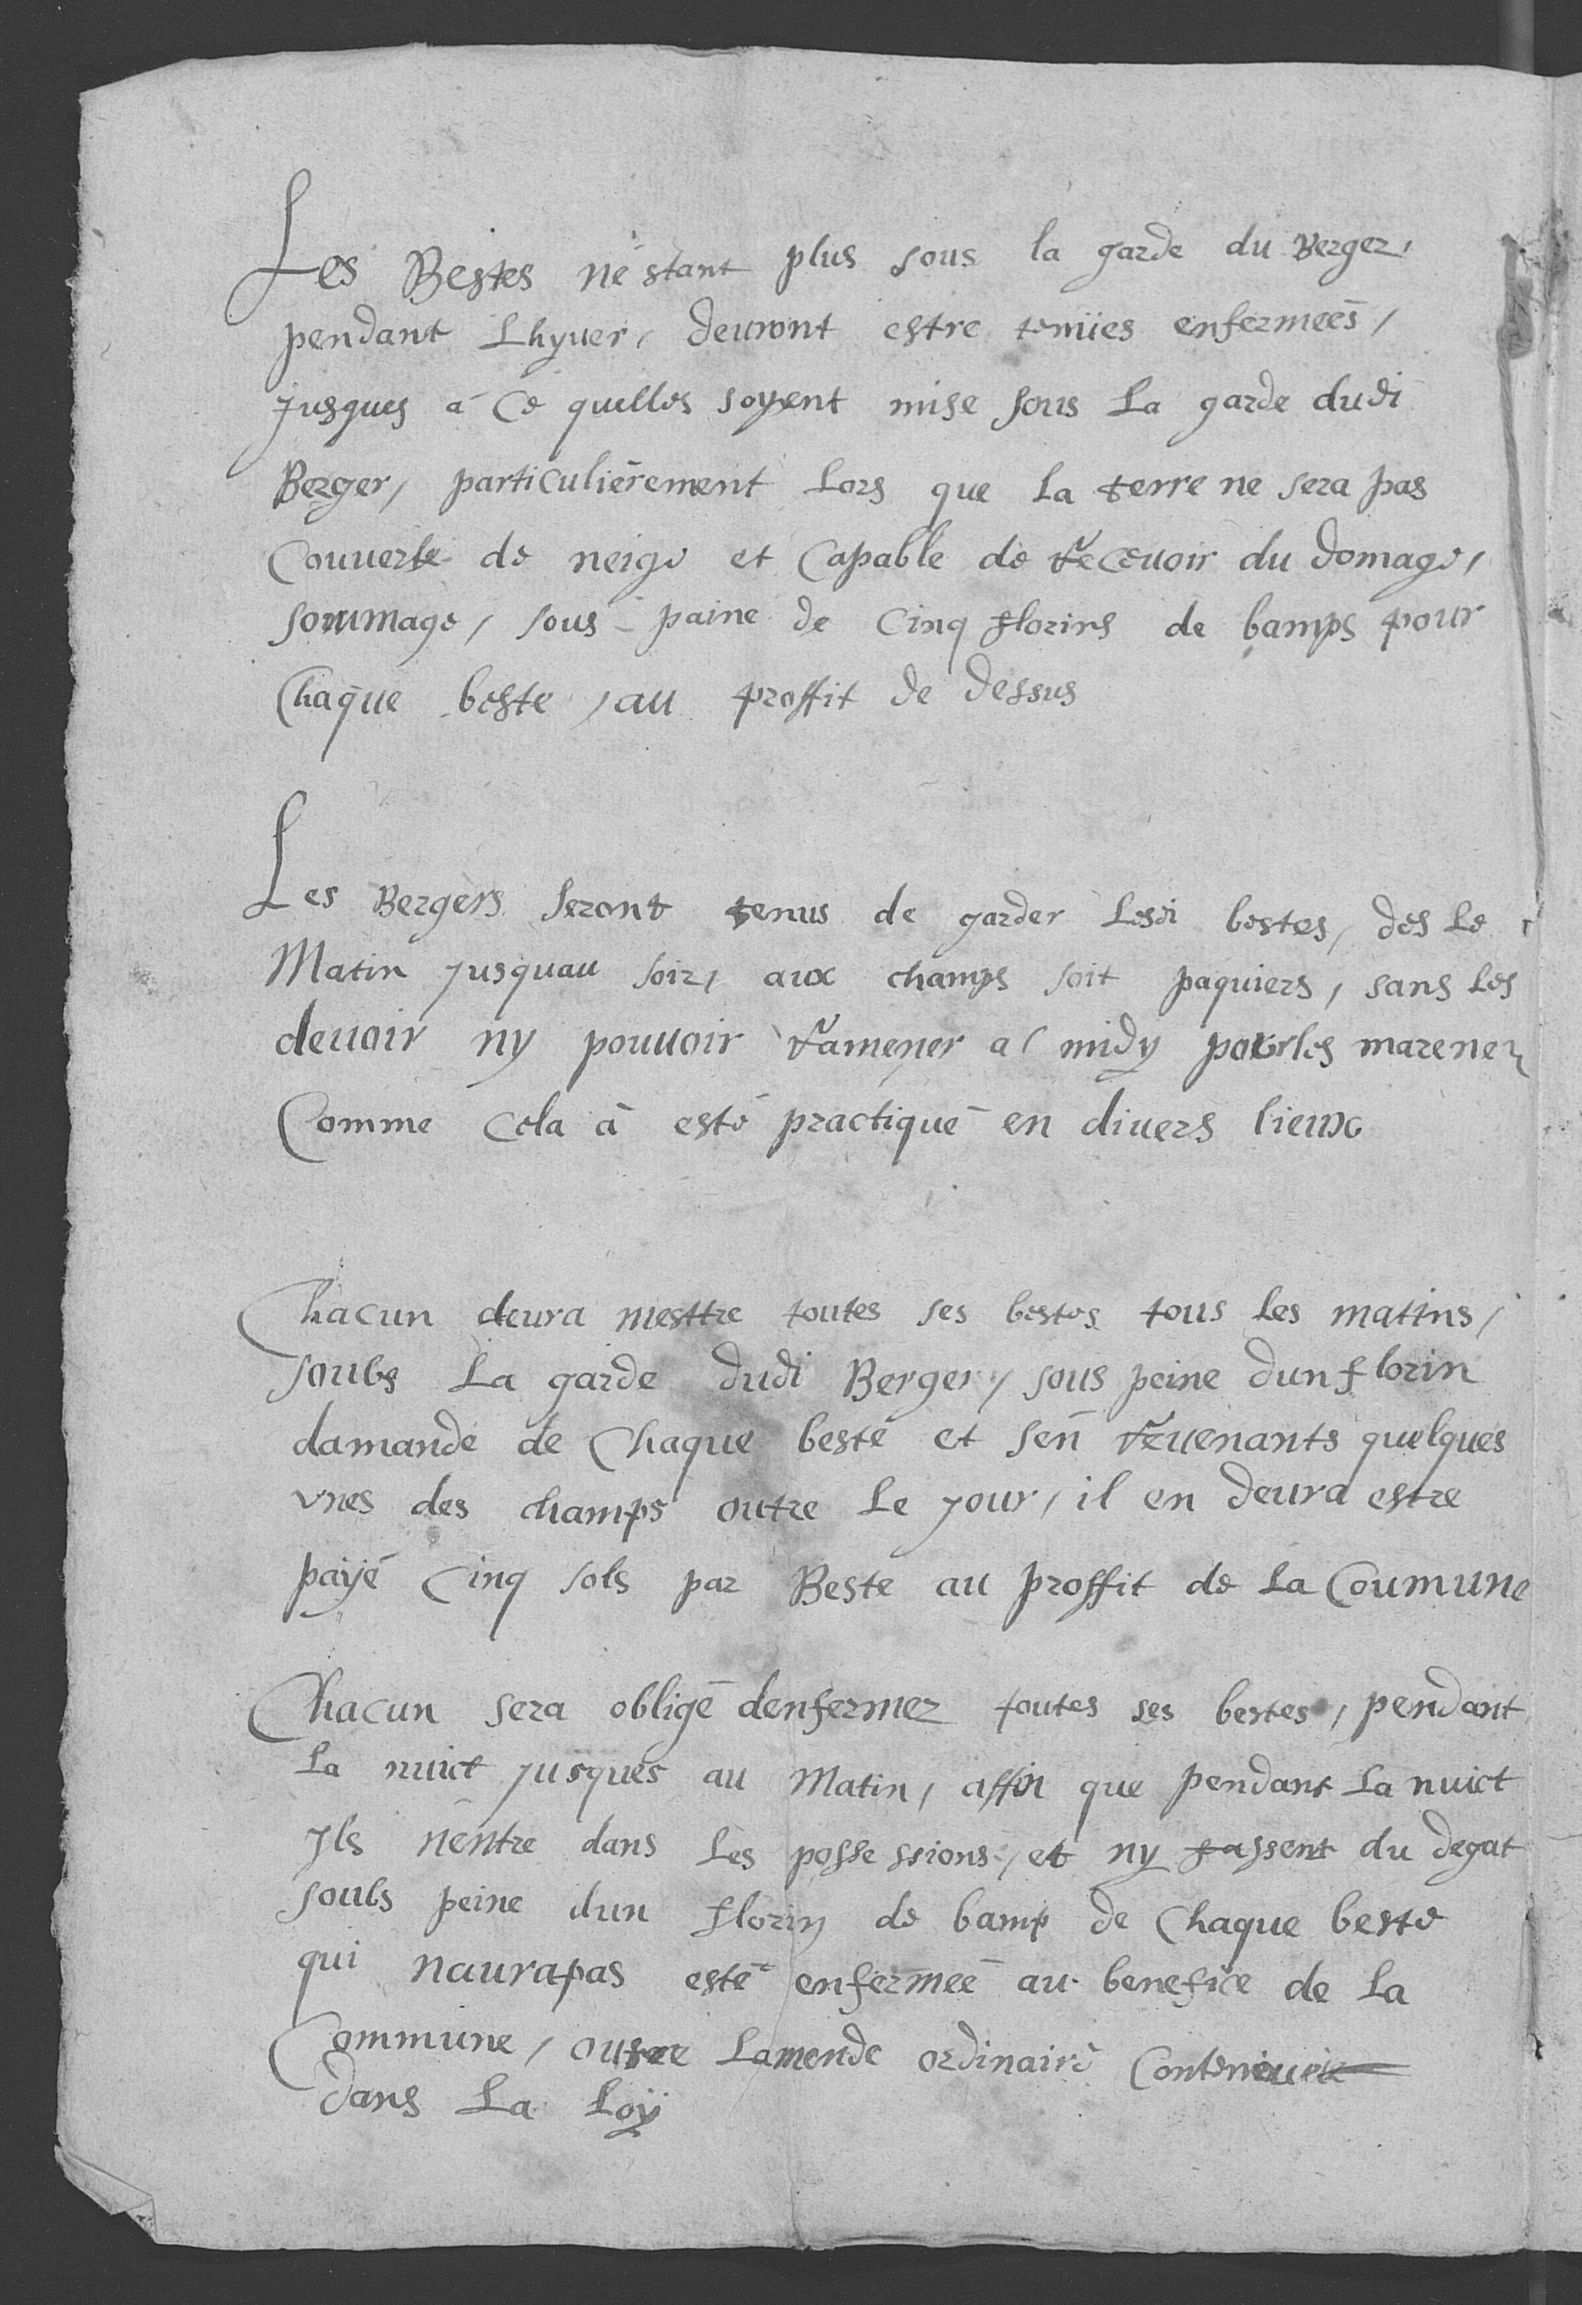 Les Bestes néstant plus sous la garde du Berger,
pendant Lhyuer, deuront estre tenües enfermeés,
jusques á Ce quelles soyent mise sous La garde dudi
Berger, particuliérement Lors que La terre ne sera pas
Couuerte de neige et Capable de receuoir du domage,
sommage, sous paine de Cinq florins de bamps pour
Chaque beste, au proffit de dessus
Les Bergers seront tenus de garder Lesdi bestes, des Le
Matin jusquau soir, aux champs soit paquiers, sans Les
deuoir ny pouuoir ramener a midy pour les marener
Comme Cela à esté practiqué en diuers lieux
Chacun deura mesttre toutes ses bestes tous Les matins,
soubs La garde dudi Berger, sous peine dun florin
damande de Chaque beste et sén reuenants quelques
vnes des champs outre Le jour, il en deura estre
payé Cinq sols par Beste au proffit de La Coumune
Chacun sera obligé denfermer toutes ses bestes, pendant
La nuict jusques au Matin, affin que pendant La nuict
Jls néntre dans Les possessions, et ny fassent du degat
soubs peine dun florin de bamp de Chaque beste
qui naura pas esté enfermeé au benefice de La
Commune, outre Lamende ordinaire
dans La Loÿ